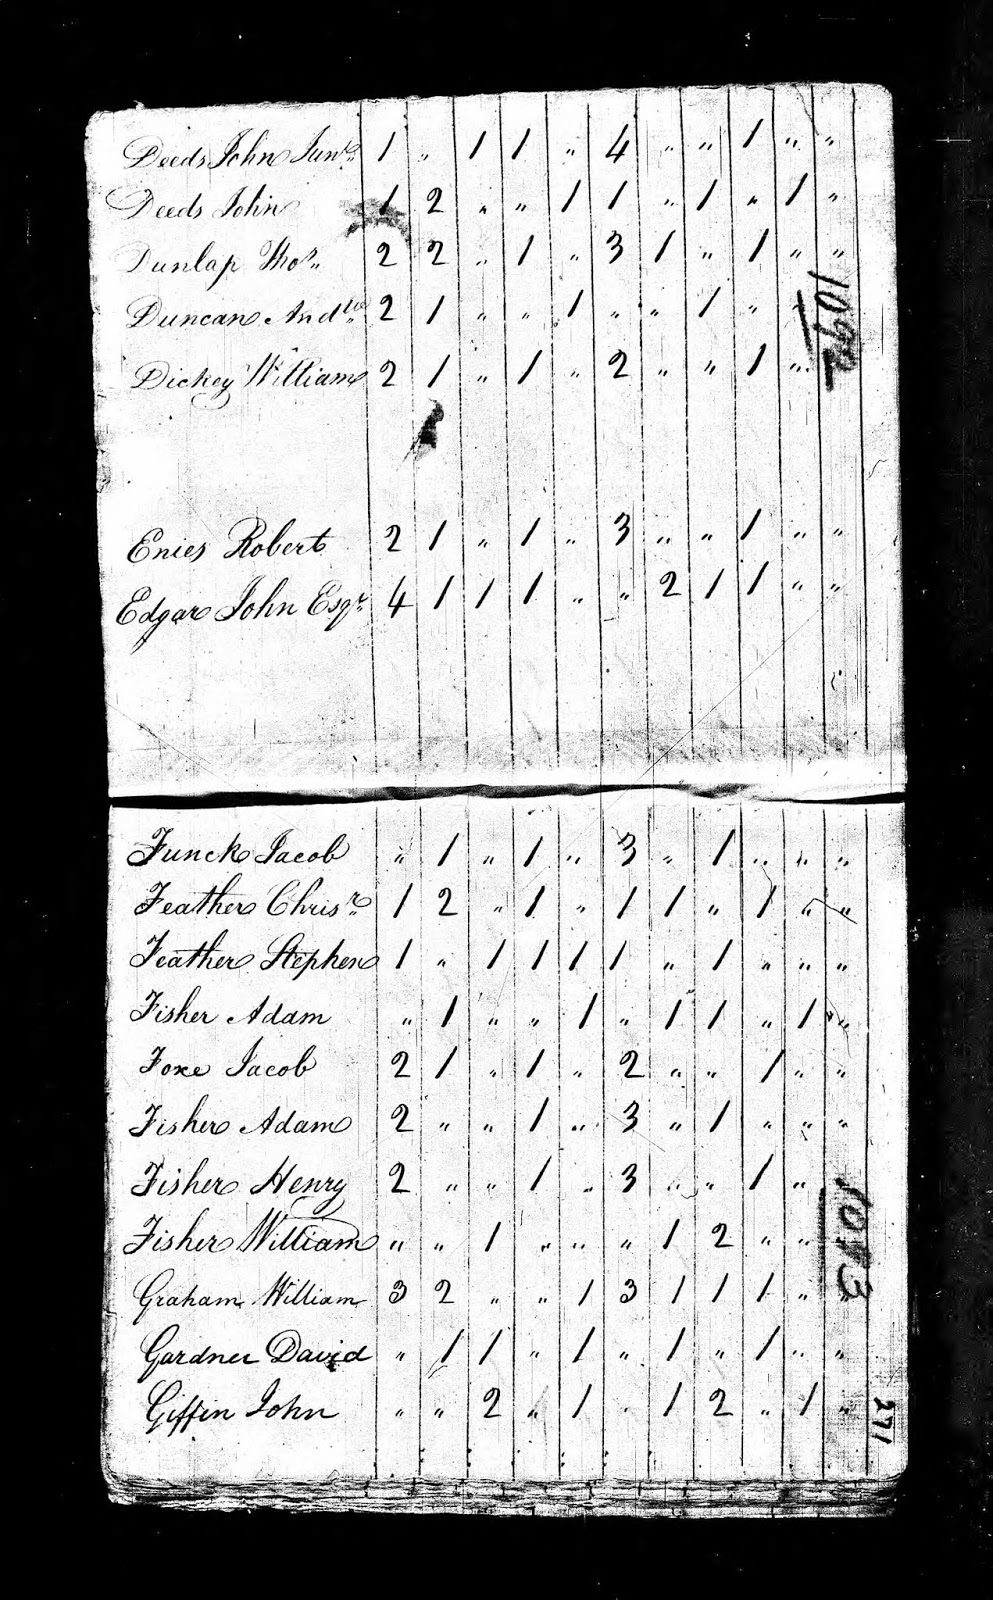 Deeds John Junr. 1 " 1 1 " 4 " " 1 " "
Deeds John 1 2 " " 1 1 " 1 " 1 "
Dunlap Thos. 2 2 " 1 " 3 1 " 1 " "
Duncan And 2 1 " " 1 " " 1 "
Dickey William 2 1 " 1 " 2 " " 1 "
1092
Enies Robert 2 1 " 1 " 3 " " 1 " "
Edgar John Esqr. 4 1 1 1 " " 2 1 1 " "
Funck Jacob " 1 " 1 " 3 " 1 " " "
Feather Chrisr. 1 2 " 1 " 1 1 " 1 " "
Feather Stephen 1 " 1 1 1 1 " 1 " " "
Fisher Adam " 1 " " 1 " 1 1 " 1 "
Foxe Jacob 2 1 " 1 " 2 " " 1 " "
Fisher Adam 2 " " 1 " 3 " 1 " " "
Fisher Henry 2 " " 1 " 3 " " 1 "
Fisher William " " 1 " " " 1 2 " "
1093
Graham William 3 2 " " 1 3 1 1 1 "
Gardner David " 1 1 " 1 " 1 " 1 " "
Giffin John " " 2 " 1 " 1 2 " 1 "
271